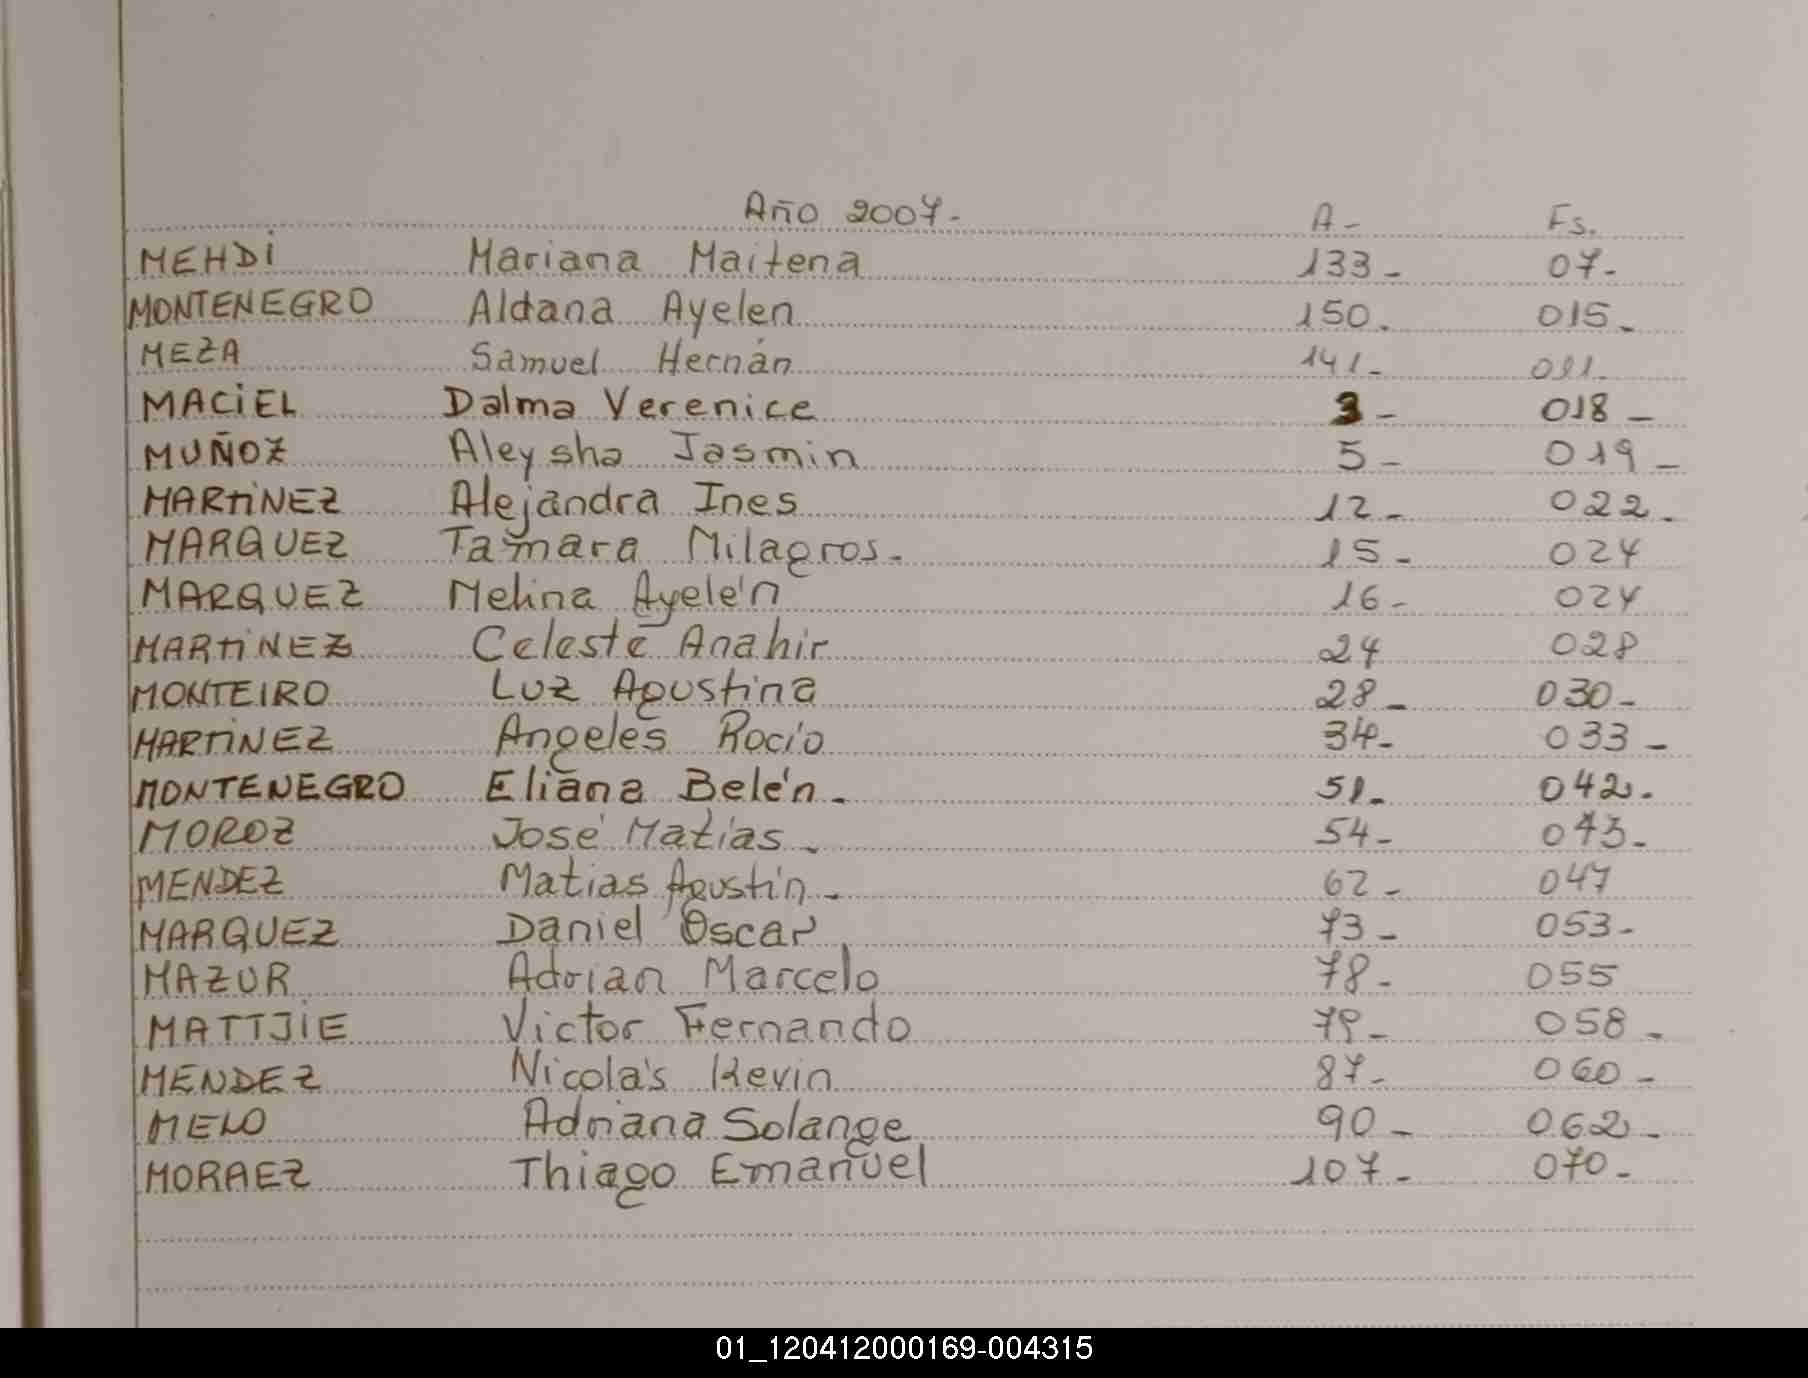 Año 2007- A- Fs.
MEHDI Mariana Maitena 133- 07-
MONTENEGRO Aldana Ayelen 150. 015-
MEZA Samuel Hernán 141- 011-
MACIEL Dalma Verenice 3- 018-
MUÑOZ Aleysha Jasmin 5- 019-
MARTINEZ Alejandra Ines 12- 022-
MARQUEZ Tamara Milagros- 15- 024
MARQUEZ Melina Ayelén 16- 024
MARTINEZ Celeste Anahir 24 028
MONTEIRO Luz Agustina 28- 030-
MARTINEZ Angeles Rocío 34- 033-
MONTENEGRO Eliana Belén- 51- 042-
MOROZ José Matías- 54- 043-
MENDEZ Matias Agustín- 62- 047
MARQUEZ Daniel Oscar 73- 053-
MAZUR Adrian Marcelo 78- 055
MATTJIE Victor Fernando 79- 058-
MENDEZ Nicolás Kevin 87- 060-
MELO Adriana Solange 90- 062-
MORAEZ Thiago Emanuel 107- 070-
01_120412000169-004315